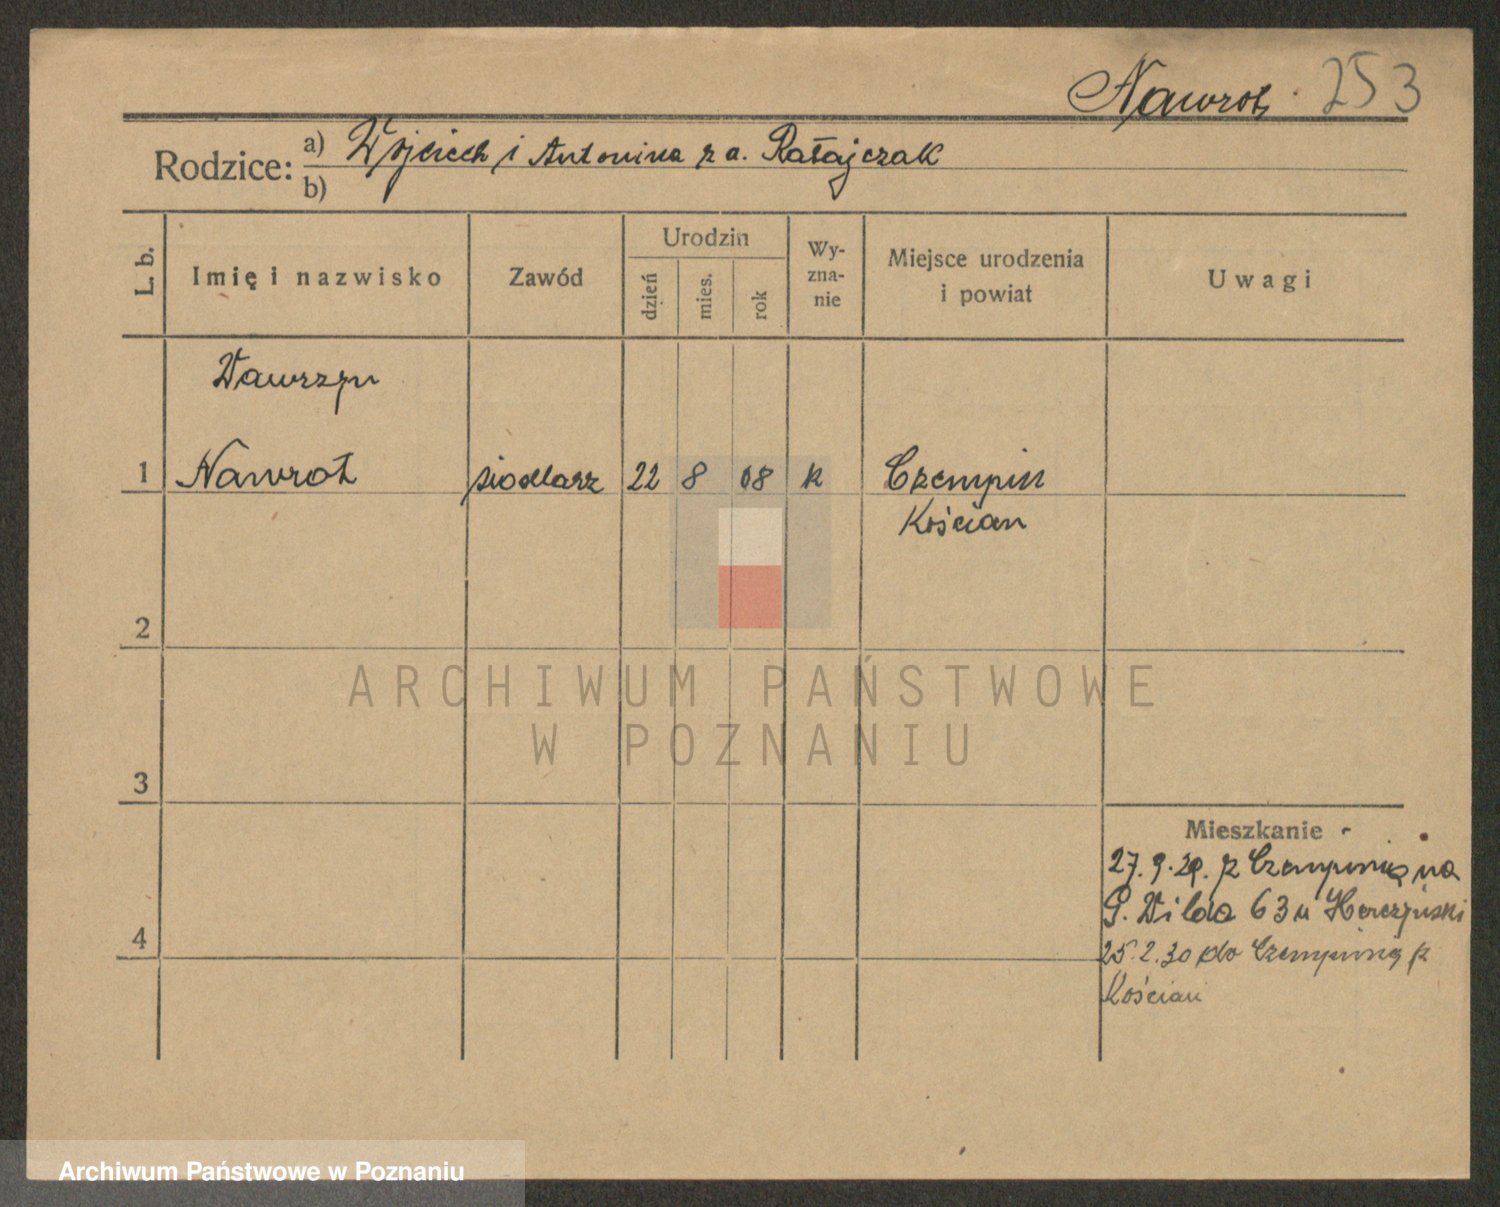 Nawrot. 253
Rodzice: a) Wojciech i Antonina z d. Ratajczak
b)
L. b.
Imię i nazwisko
Zawód
Urodzin
dzień
mies.
rok
Wy-
zna-
nie
Miejsce urodzenia
i powiat
Uwagi
Wawrzyn
1 Nawrot siodlarz 22 8 08 k Czempin
Kościan
2
ARCHIWUM PAŃSTWOWE
W POZNANIU
3
Mieszkanie
27.9.29. z Czempinia na
G. Wilda 63 u Herczyński
4
25.2.30 do Czempinia p
Kościan
Archiwum Państwowe w Poznaniu